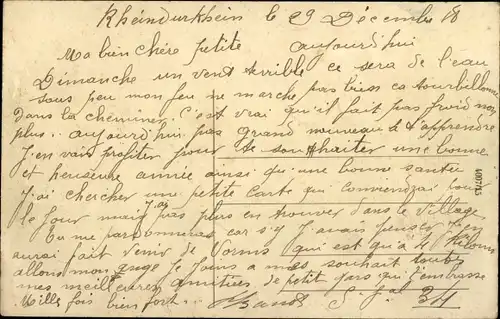 Rheindurkheim le 29 Décembre 18
Ma bien chère petite aujourd'hui
Dimanche un vent terrible ce sera de l'eau
sous peu mon feu ne marche pas bien ca tourbillonne
dans la cheminer. C'est vrai qu'il fait pas froid non
plus.. aujourd'hui pas grand nouveau à t'apprendre
J'en vais profiter pour te souhaiter une bonne
et heureuse année ainsi qu'une bonne santée
J'ai chercher une petite carte qui conviendrai pour
le jour mais j'ai pas plus en trouver dans le village
Tu me pardonneras car s'y j'avais penser j'en
aurai fait venir de Worms qui est qu'à 4 Kilomes
allons mon ange je joins a mes souhait toutes
mes meilleures amitiées de petit gars qui t'embrasse
Mille fois bien fort.. S. 34